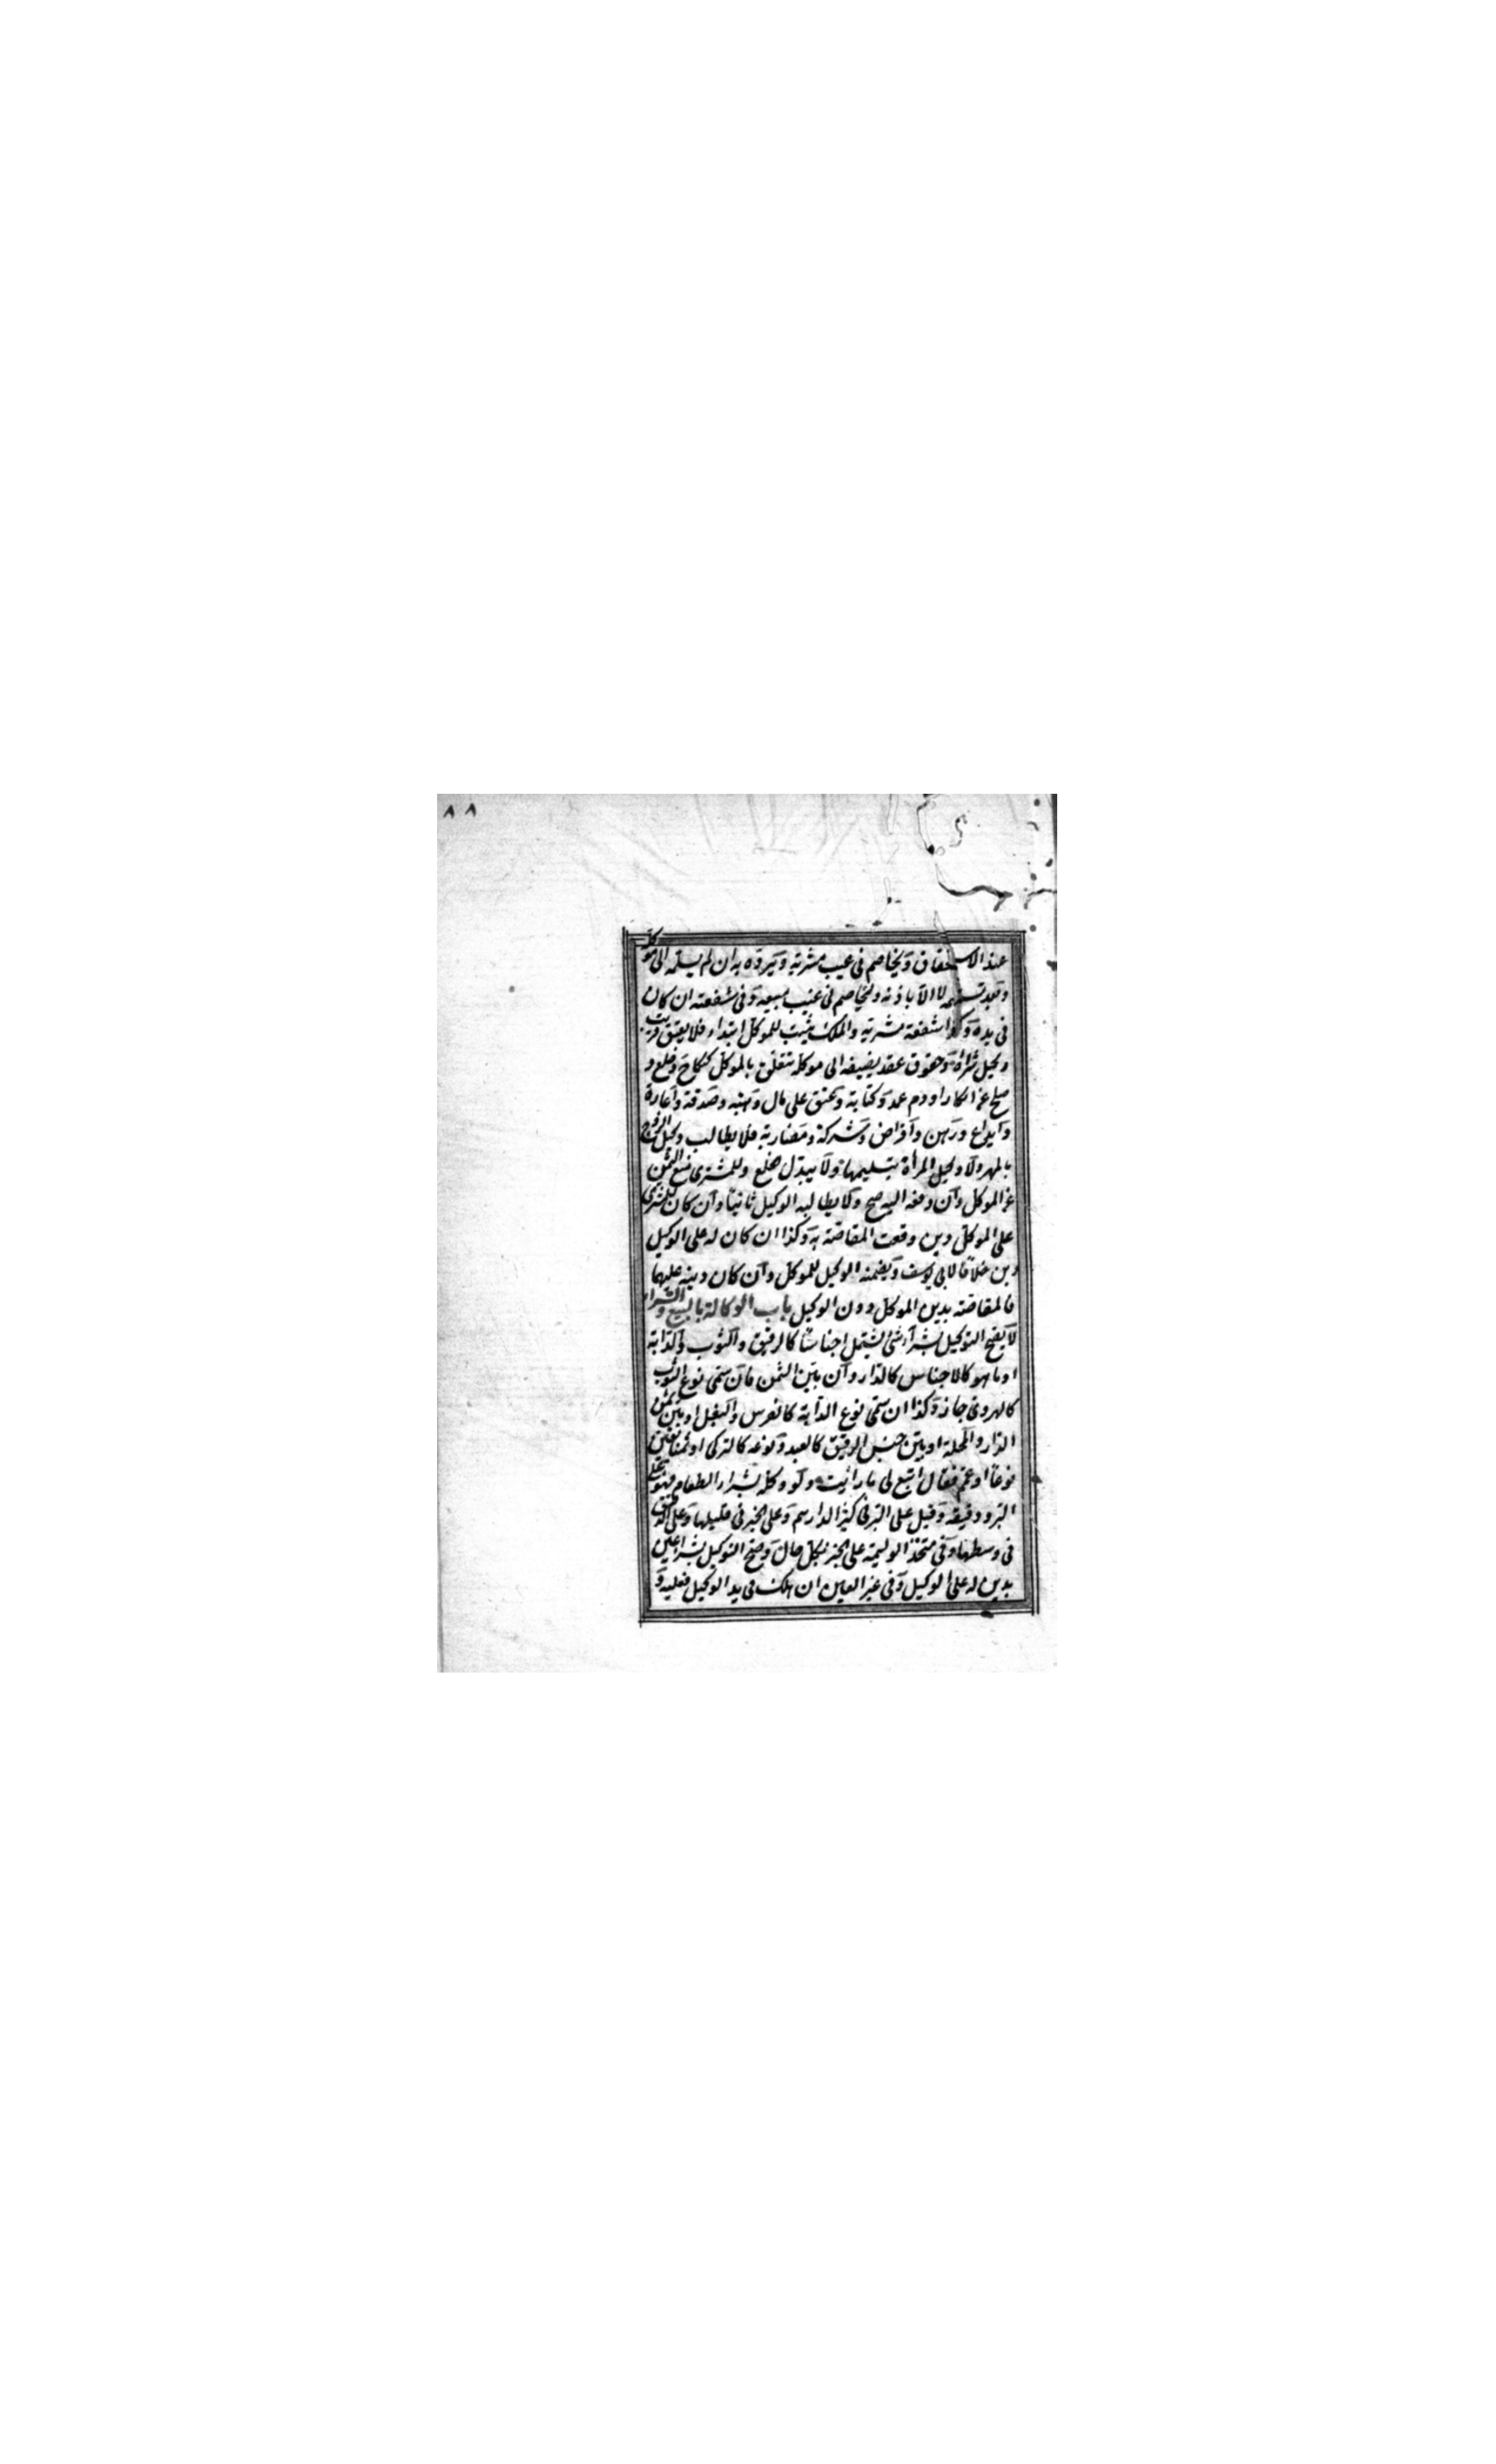 ٨٨
عند الاستحقاق ويخاصم في عيب مشريه ويرده به ان لم يسلمه الى موكله
وبعد تسليمه لا الا باذنه ويخاصم في عيب مبيعه وفي شفعته ان كان
في يده وكذا شفعة مشريه والملك يثبت للموكل ابتداء فلا يعتق قريب
وكيل شراه وحقوق عقد يضيفه الى موكله تتعلق بالموكل كنكاح وخلع و
صلح عن انكار او دم عمد وكتابة وعتق على مال وهبه وصدقة واعارة
وايداع ورهن واقراض وشركة ومضاربة فلا يطالب وكيل الزوج
بالمهر ولا وكيل المرأة بتسليمها ولا ببدل خلع وللمشترى منع الثمن
عن الموكل وان دفعه اليه صح ولا يطالبه الوكيل ثانيا وان كان للمشترى
على الموكل دين وقعت المقاصة به وكذا ان كان له على الوكيل
دين خلافا لابي يوسف ويضمنه الوكيل للموكل وان كان دينه عليهما
فالمقاصة بدين الموكل دون الوكيل باب الوكالة بالبيع والشراء
لا يصح التوكيل بشراء شئ يشتمل اجناسا كالرقيق والثوب والدابة
او ما هو كالاجناس كالدار وان بين الثمن فان سمى نوع الثوب
كالهروى جاز وكذا ان سمى نوع الدابة كالفرس والبغل او بين ثمن
الدار والمحلة او بين جنس الرقيق كالعبد ونوعه كالتركى او ثمنا يعين
نوعا او عمم فقال ابتع لى ما رايت ولو وكله بشراء الطعام فهو على
البر ودقيقه وقيل على البر في كثير الدراهم وعلى الخبز في قليلها وعلى الدقيق
في وسطها وفي متخذ الوليمة على الخبز بكل حال وصح التوكيل بشراء عين
بدين له على الوكيل وفي غير العين ان هلك في يد الوكيل فعليه و